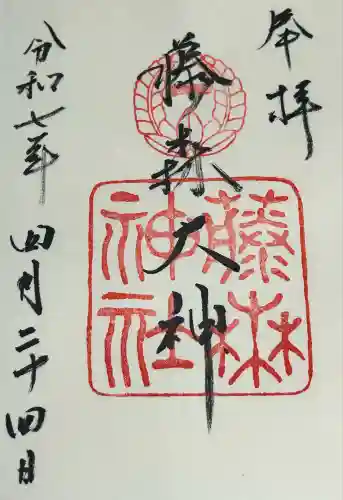 奉拝
藤森大神
藤森
神社
令和七年
四月二十四日